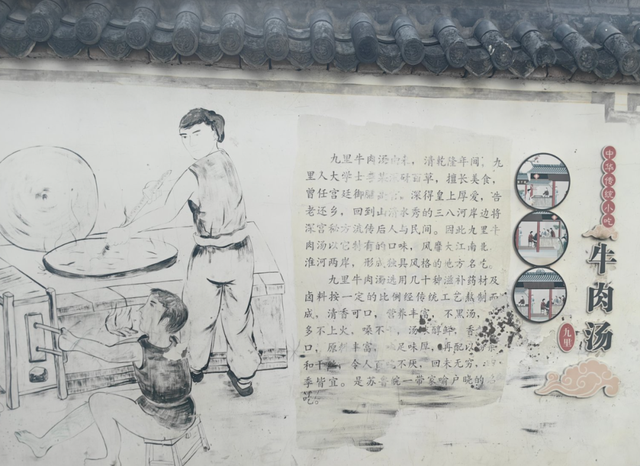 九里牛肉汤由来，清乾隆年间，九
里人大学士李 百草，擅长美食，
曾任宫廷御膳 官。深得皇上厚爱，告
老还乡，回到山清水秀的三八河岸边将
深宫秘方流传后人与民间。因此九里牛
肉汤以它特有的口味，风靡大江南北，
淮河两岸，形成独具风格的地方名吃。
九里牛肉汤选用几十种滋补药材及
卤料按一定的比例经传统工艺熬制而
成，清香可口，营养丰富，不黑汤，
多不上火，嗓不 ，汤 醇 ，香
口，原 丰富， 足味厚，再配以
和干 ，令人百吃不厌，回味无穷，
季皆宜。是苏鲁皖一带家喻户晓的名
吃。
中华传统小吃
牛肉汤
九里